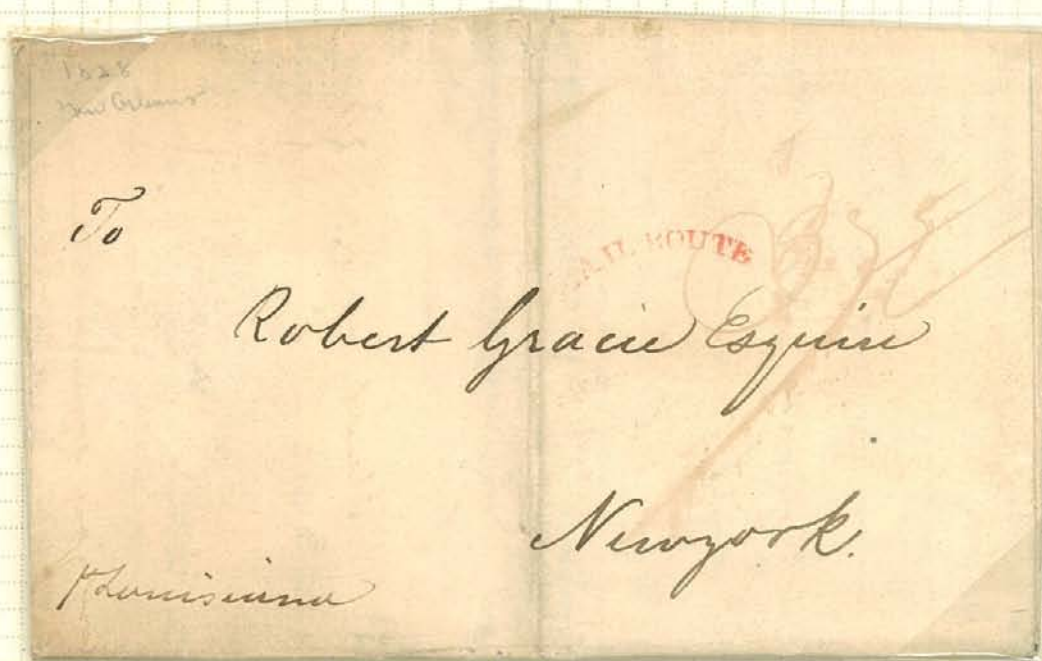 1828
New Orleans
To
AIL ROUTE
Robert Gracie Esquire
Newyork.
Louisiana